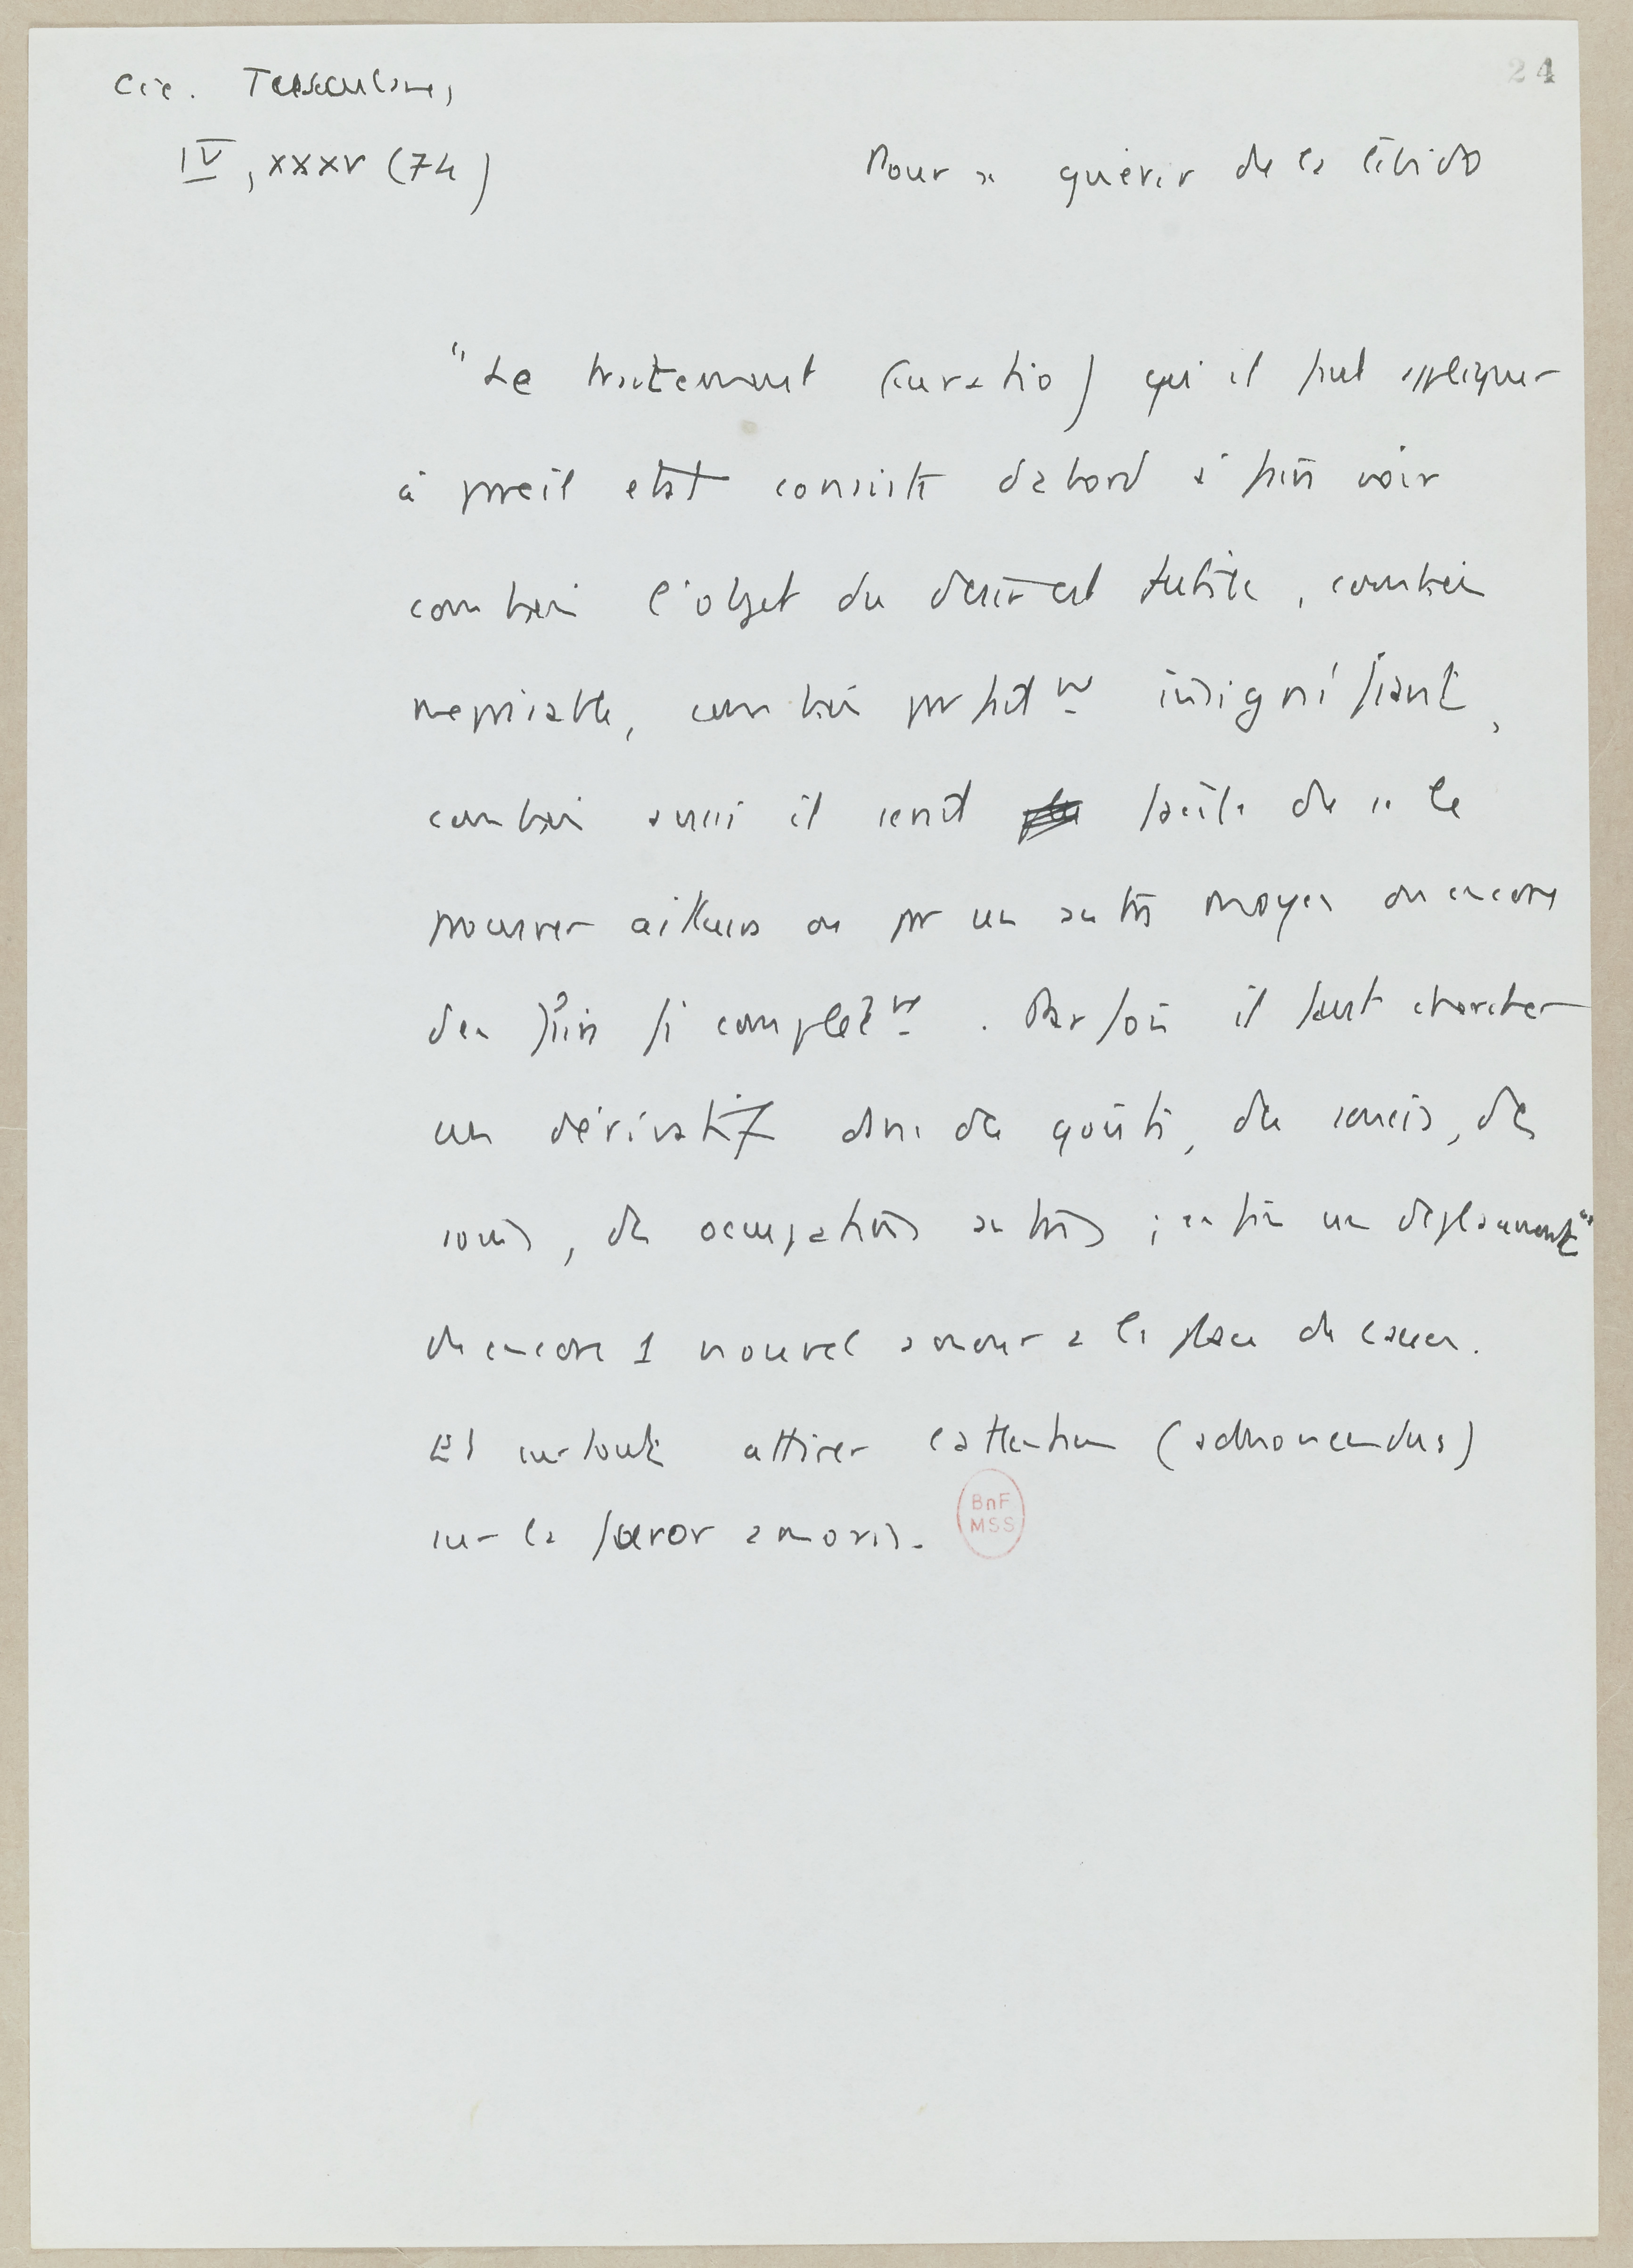 24
Cic. Tusculanes
IV, XXXV (74)
Pour se guérir de la libido
"Le traitement (curatio) qu'il faut appliquer
à pareil etat consiste dabord à faire voir
combien l'objet du desir est futile, combien
meprisable, combien parfait nt insignifiant,
combien aussi il serait facile de se le
procurer ailleurs ou par un autre moyen ou encore
den faire fi complèt nt. Parfois il faut chercher
un dérivatif dans des goûts, des soucis, des
soins, des occupations autres ; enfin un deplacement"
ou encore 1 nouvel amour a la place de
Et surtout attirer lattention (admonendus)
sur la furor amoris.
BnF
MSS